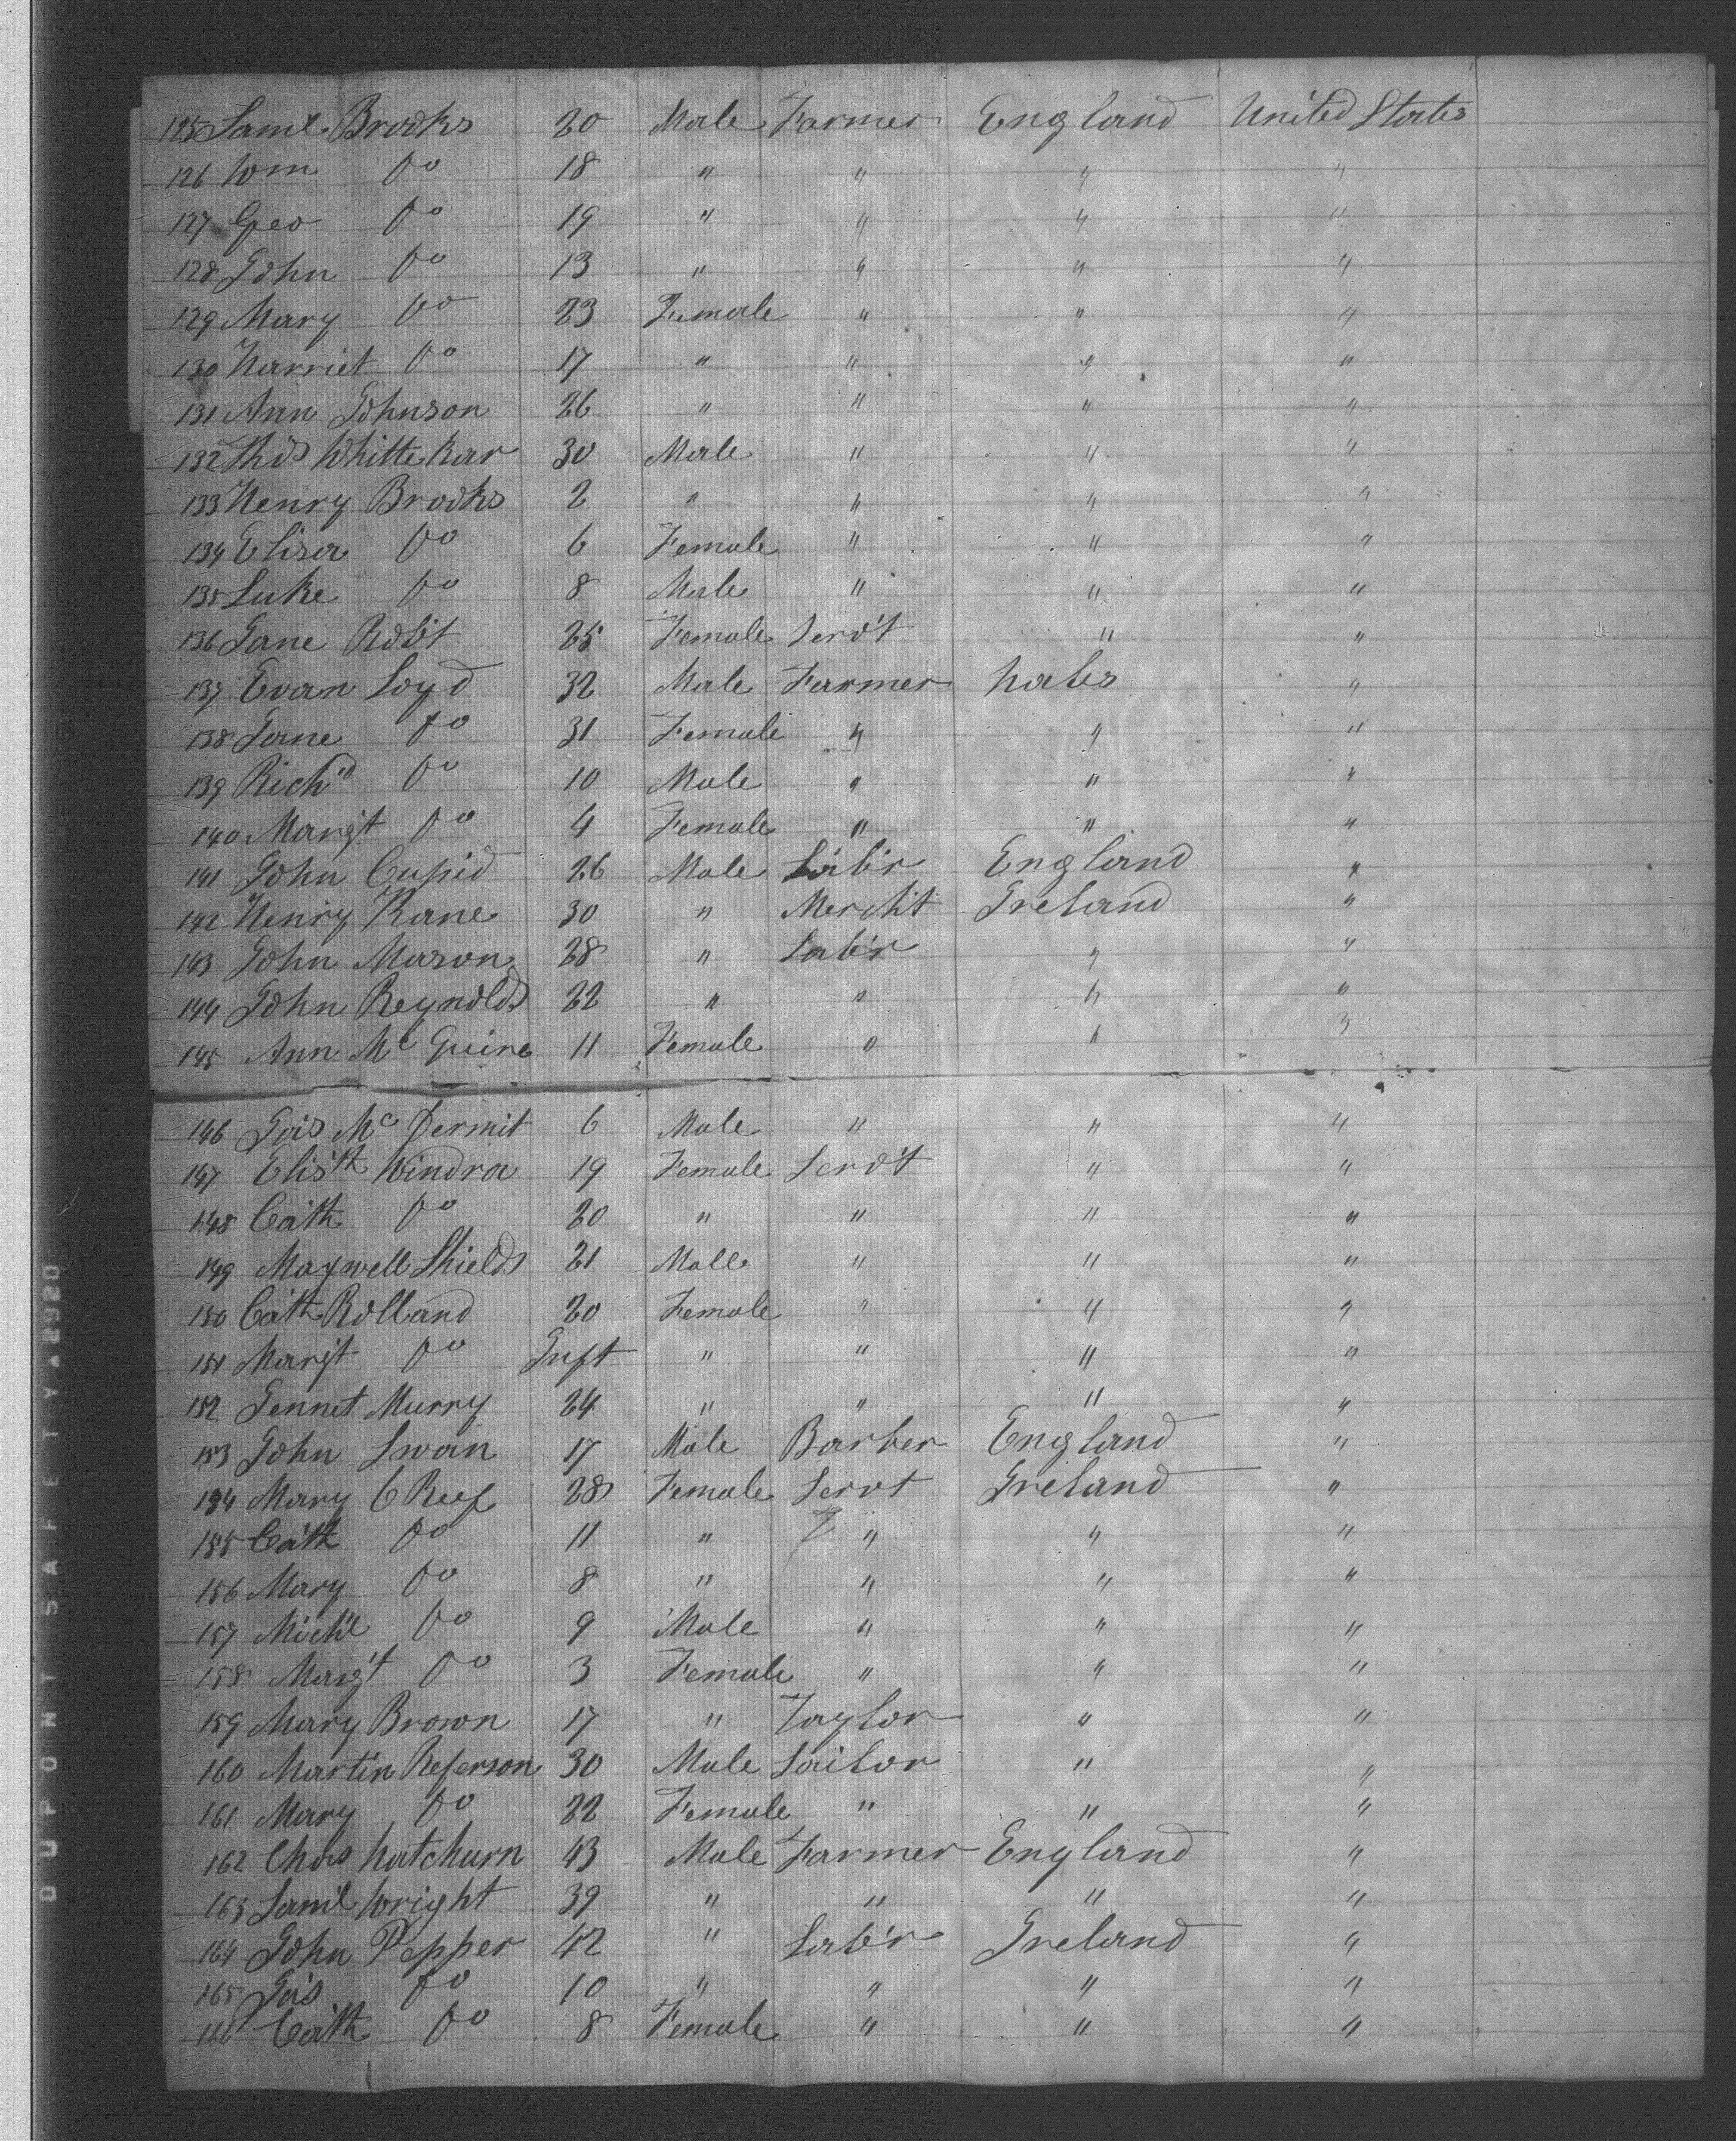 125 Saml Brooks 20 Male Farmer England United States
126 Wm Do 18 " " " "
127 Geo Do 19 " " " "
128 John Do 13 " " " "
129 Mary Do 23 Female " " "
130 Harriet Do 17 " " " "
131 Ann Johnson 26 " " " "
132 Thos Whittekar 30 Male " " "
133 Henry Brooks 2 " " " "
134 Eliza Do 6 Female " " "
135 Luke Do 8 Male " " "
136 Jane Robt 25 Female Serv't " "
137 Evan Loyd 32 Male Farmer Wales "
138 Jane Do 31 Female " " "
139 Rich'd Do 10 Male " " "
140 Marg't Do 4 Female " " "
141 John Cupid 26 Male Lab'r England "
142 Henry Kane 30 " Merch't Ireland "
143 John Mason 28 " Lab'r " "
144 John Reynolds 22 " " " "
145 Ann Mc Guire 11 Female " " "
146 Jas Mc Dermit 6 Male " " "
147 Elis'th Windra 19 Female Serv't " "
148 Cath Do 20 " " " "
149 Maxwell Shields 21 Male " " "
150 Cath Rolland 20 Female " " "
151 Marg't Do Inft " " " "
152 Jennet Murry 24 " " " "
153 John Swan 17 Male Barber England "
154 Mary 28 Female Servt Ireland "
155 Cath Do 11 " " " "
156 Mary Do 8 " " " "
157 Mich'l Do 9 Male " " "
158 Marg't Do 3 Female " " "
159 Mary Brown 17 " Taylor " "
160 Martin Referson 30 Male Sailor " "
161 Mary Do 22 Female " " "
162 Chas Hatchurn 43 Male Farmer England "
163 Saml Wright 39 " " " "
164 John Pepper 42 " Lab'r Ireland "
165 Jas Do 10 " " " "
166 Cath Do 8 Female " " "
DUPONT SAFETY 2920